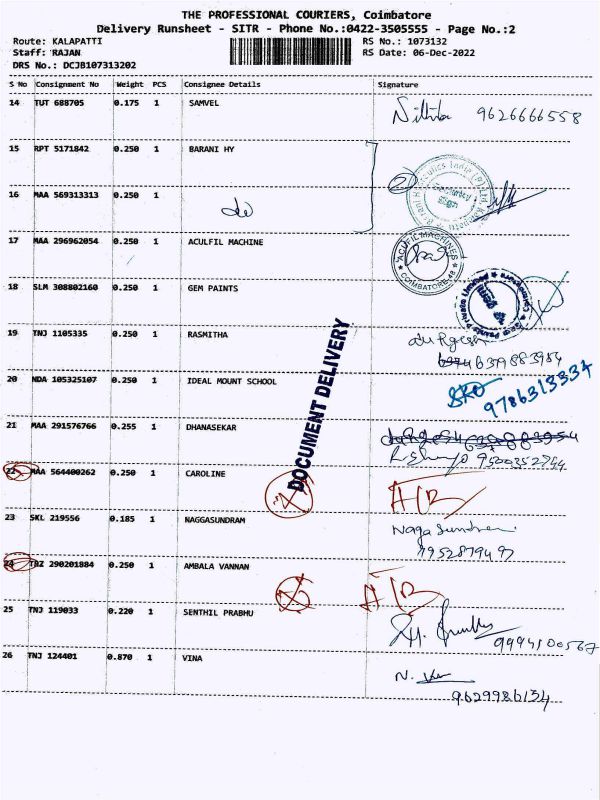 THE PROFESSIONAL COURIERS, Coimbatore
Delivery Runsheet - SITR - Phone No.:0422-3505555 - Page No.:2
Route: KALAPATTI RS No.: 1073132
Staff: RAJAN RS Date: 06-Dec-2022
DRS No.: DCJB107313202
S No Consignment No Weight PCS Consignee Details Signature
14 TUT 688705 0.175 1 SAMVEL 9626666558
15 RPT 5171842 0.250 1 BARANI HY
16 MAA 569313313 0.250 1 do
17 MAA 296962054 0.250 1 ACULFIL MACHINE
ACUFIL MACHINES
COIMBATORE-48
18 SLM 308802160 0.250 1 GEM PAINTS
19 TNJ 1105335 0.250 1 RASMITHA
20 NDA 105325107 0.250 1 IDEAL MOUNT SCHOOL 9786313334
DOCUMENT DELIVERY
21 MAA 291576766 0.255 1 DHANASEKAR
9500352754
22 MAA 564400262 0.250 1 CAROLINE
23 SKL 219556 0.185 1 NAGGASUNDRAM Naga Sundram
7952879497
24 TRZ 290201884 0.250 1 AMBALA VANNAN
25 TNJ 119033 0.220 1 SENTHIL PRABHU 9994100567
26 TNJ 124401 0.870 1 VINA
9629986134